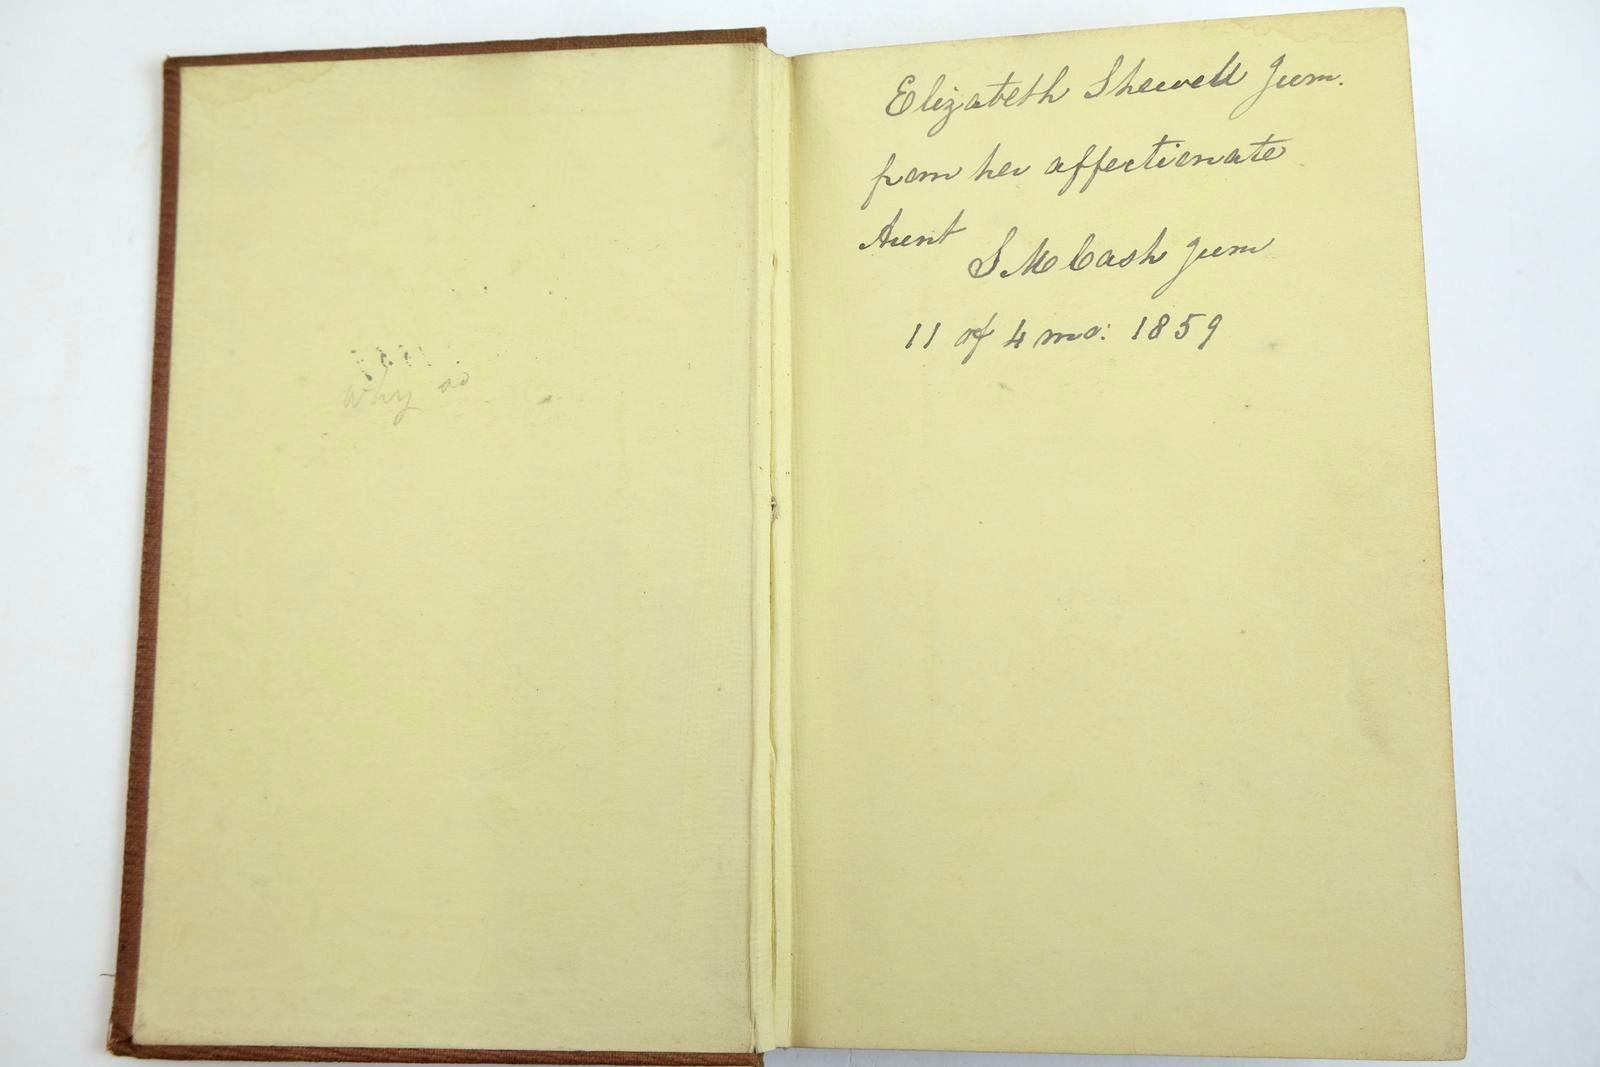 why as
Elizabeth Shewell Junr.
from her affectionate
Aunt
S M Cash Junr
11 of 4 mo: 1859